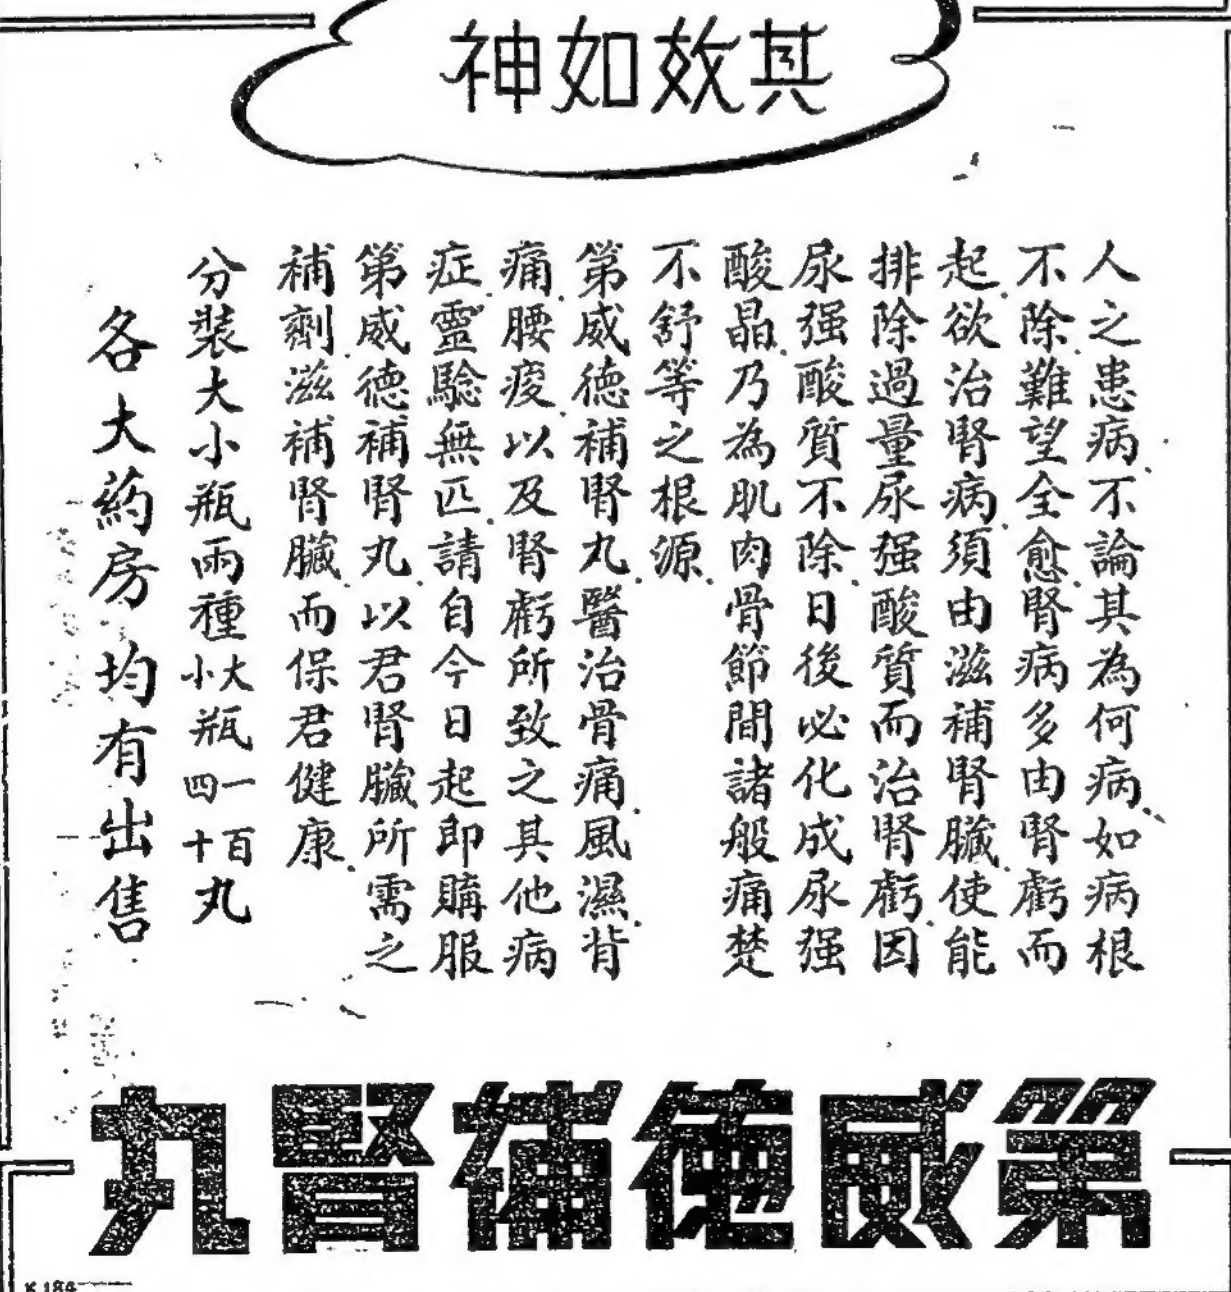 其效如神
人之患病.不論其為何病.如病根
不除.難望全愈.腎病多由腎虧而
起.欲治腎病.須由滋補腎臟.使能
排除過量尿强酸質而治腎虧.因
尿强酸質不除.日後必化成尿强
酸晶.乃為肌肉骨節間諸般痛楚
不舒等之根源.
第威德補腎丸.醫治骨痛.風濕.背
痛.腰痠.以及腎虧所致之其他病
症.靈驗無匹.請自今日起即購服
第威德補腎丸.以君腎臟所需之
補劑.滋補腎臟.而保君健康.
分裝大小瓶兩種大瓶一百丸小瓶四十丸
各大葯房均有出售.
第威德補腎丸
K 184